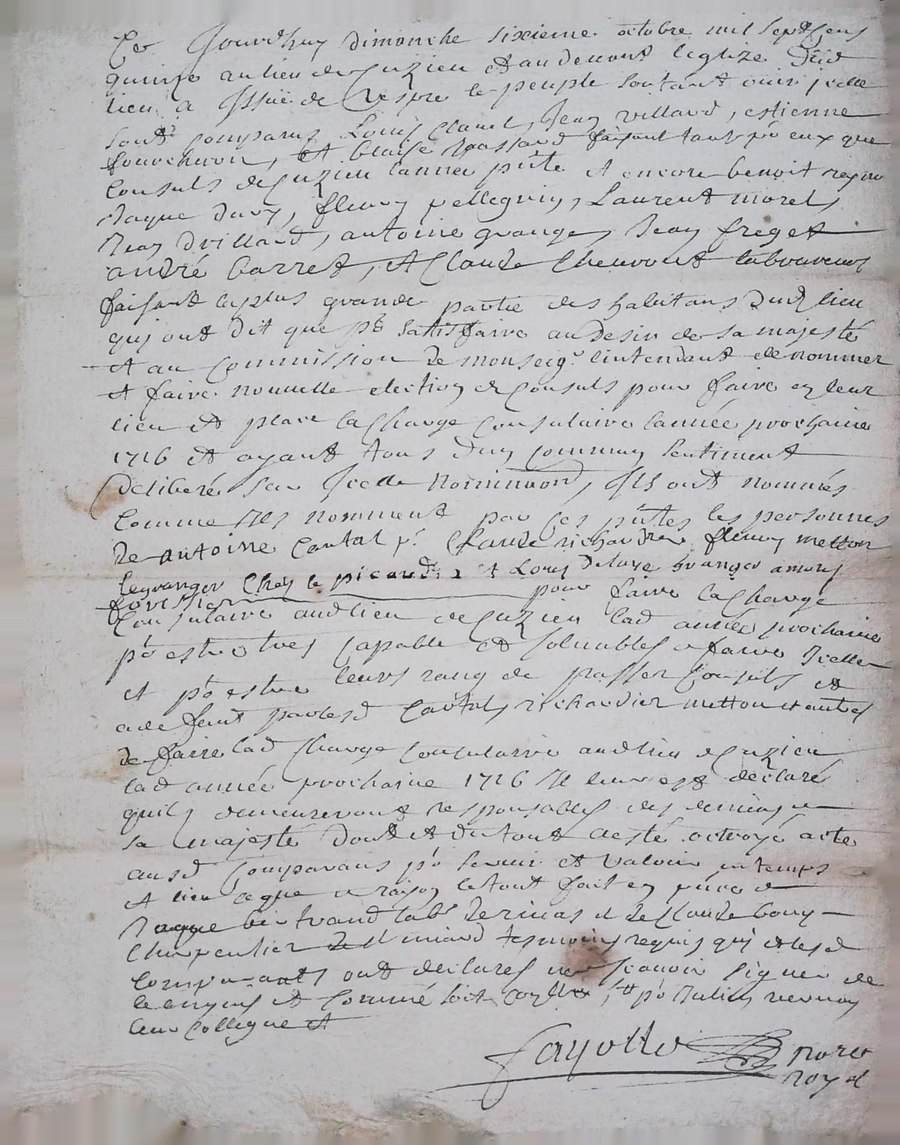 Ce Jourdhuy dimanche sixieme octobre mil sept cens
quinze au lieu de Cuzieu et au devant leglize dud
lieu a Issüe de Vespre le peuple sortant ouir icelle
sont comparus Louis Clavel, Jean Villard, estienne
fouvernon, et blaise passard faisant tant pr eux que
Consuls de Cuzieu lannee pnte et encore benoit
Jaque Davy, fleury pellegrin, Laurent morel,
Jean Drillard, antoine grange, Jean freget
andré barret, et Claude Chevront laboureurs
faisant la plus grande partie des habitans dud lieu
qui ont dit que pr satisfaire au desir de sa majesté
et au Commission de monseigr lintendant de nommer
et faire nouvelle election de Consuls pour faire en leur
lieu et place la Charge Consulaire lannée prochaine
1716 et ayant tous dun Commun sentiment
deliberé sur Icelle nomination, Ils ont nommés
Comme Ils nomment par ces pntes les personnes
De antoine Cantal pr Claude richardier fleury metton
le granger Chez le picard et Louis granger
forestier pour faire la Charge
Consulaire aud lieu de Cuzieu lad année prochaine
pr estre tres Capable et solvables a faire Icelle
et pr estre leurs rang de passer Consuls et
a deffaut par lesd Cantal, richardier metton et autres
de faire lad Charge Consulaire aud lieu de Cuzieu
lad année prochaine 1716 Il leur est déclaré
quils demeureront responsables des deniers de
sa majesté Dont et du tout a esté octroyé acte
ausd Comparans pr servir et valoir en temps
et lieu ce que de raison le tout fait en pnce de
Jaque bertrand labr de rivas et de Claude bouy
Charpentier de tesmoins requis qui et lesd
Comparants ont declarés ne scavoir signer de
le enquis et sommé soit Conttrollé, et pr Julien vernay
leur Collegue et
fayolle nore
royal